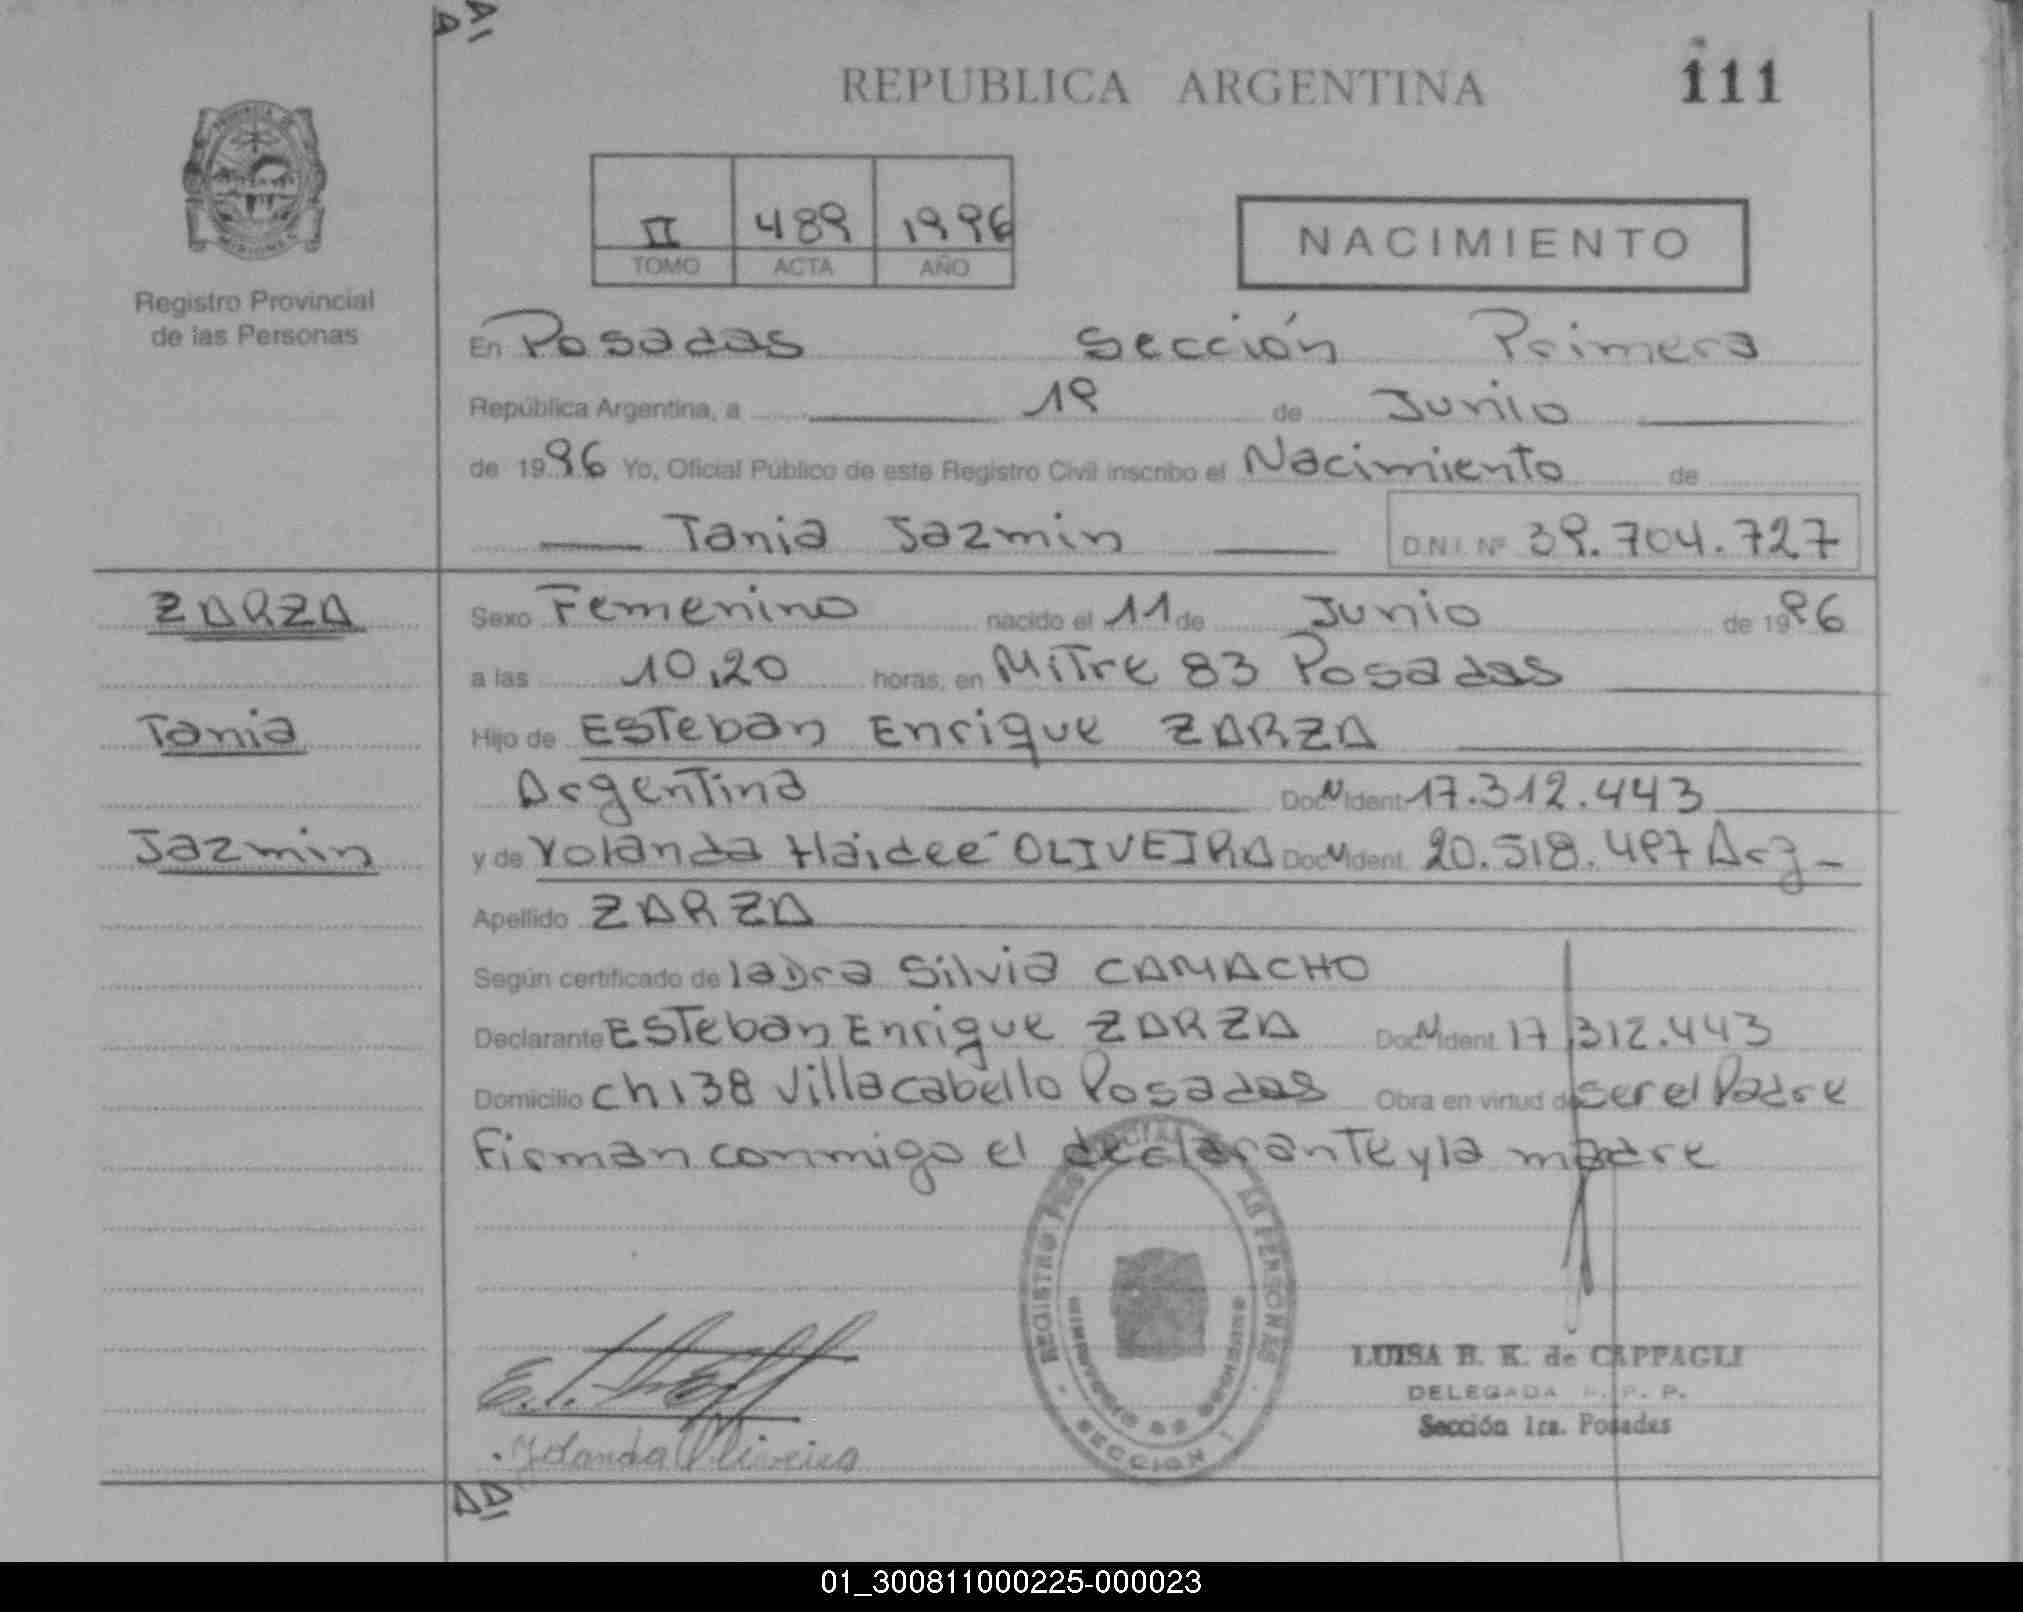 REPUBLICA ARGENTINA
111
II 489 1996
TOMO ACTA AÑO
NACIMIENTO
Registro Provincial
de las Personas
En Posadas Sección Primera
República Argentina, a 19 de Junio
de 1996 Yo, Oficial Público de este Registro Civil inscribo el Nacimiento de
Tania Jazmin D.N.I. Nº 39.704.727
ZARZA
Tania
Jazmin
Sexo Femenino nacido el 11 de Junio de 1996
a las 10,20 horas, en Mitre 83 Posadas
Hijo de Esteban Enrique ZARZA
Argentina Doc N Ident 17.312.443
y de Yolanda Haidee OLIVEIRA Doc N Ident. 20.518.497 Arg
Apellido ZARZA
Según certificado de la Dra Silvia CAMACHO
Declarante Esteban Enrique ZARZA Doc N Ident. 17 312.443
Domicilio Ch 138 Villa Cabello Posadas Obra en virtud de ser el Padre
Firman conmigo el declarante y la madre
REGISTRO LAS PERSONAS
MINISTERIO DE GOBIERNO
SECCION 1
LUISA B. K. de CAPPAGLI
DELEGADA R. P. P.
Sección 1ra. Posadas
Yolanda Oliveira
01_300811000225-000023